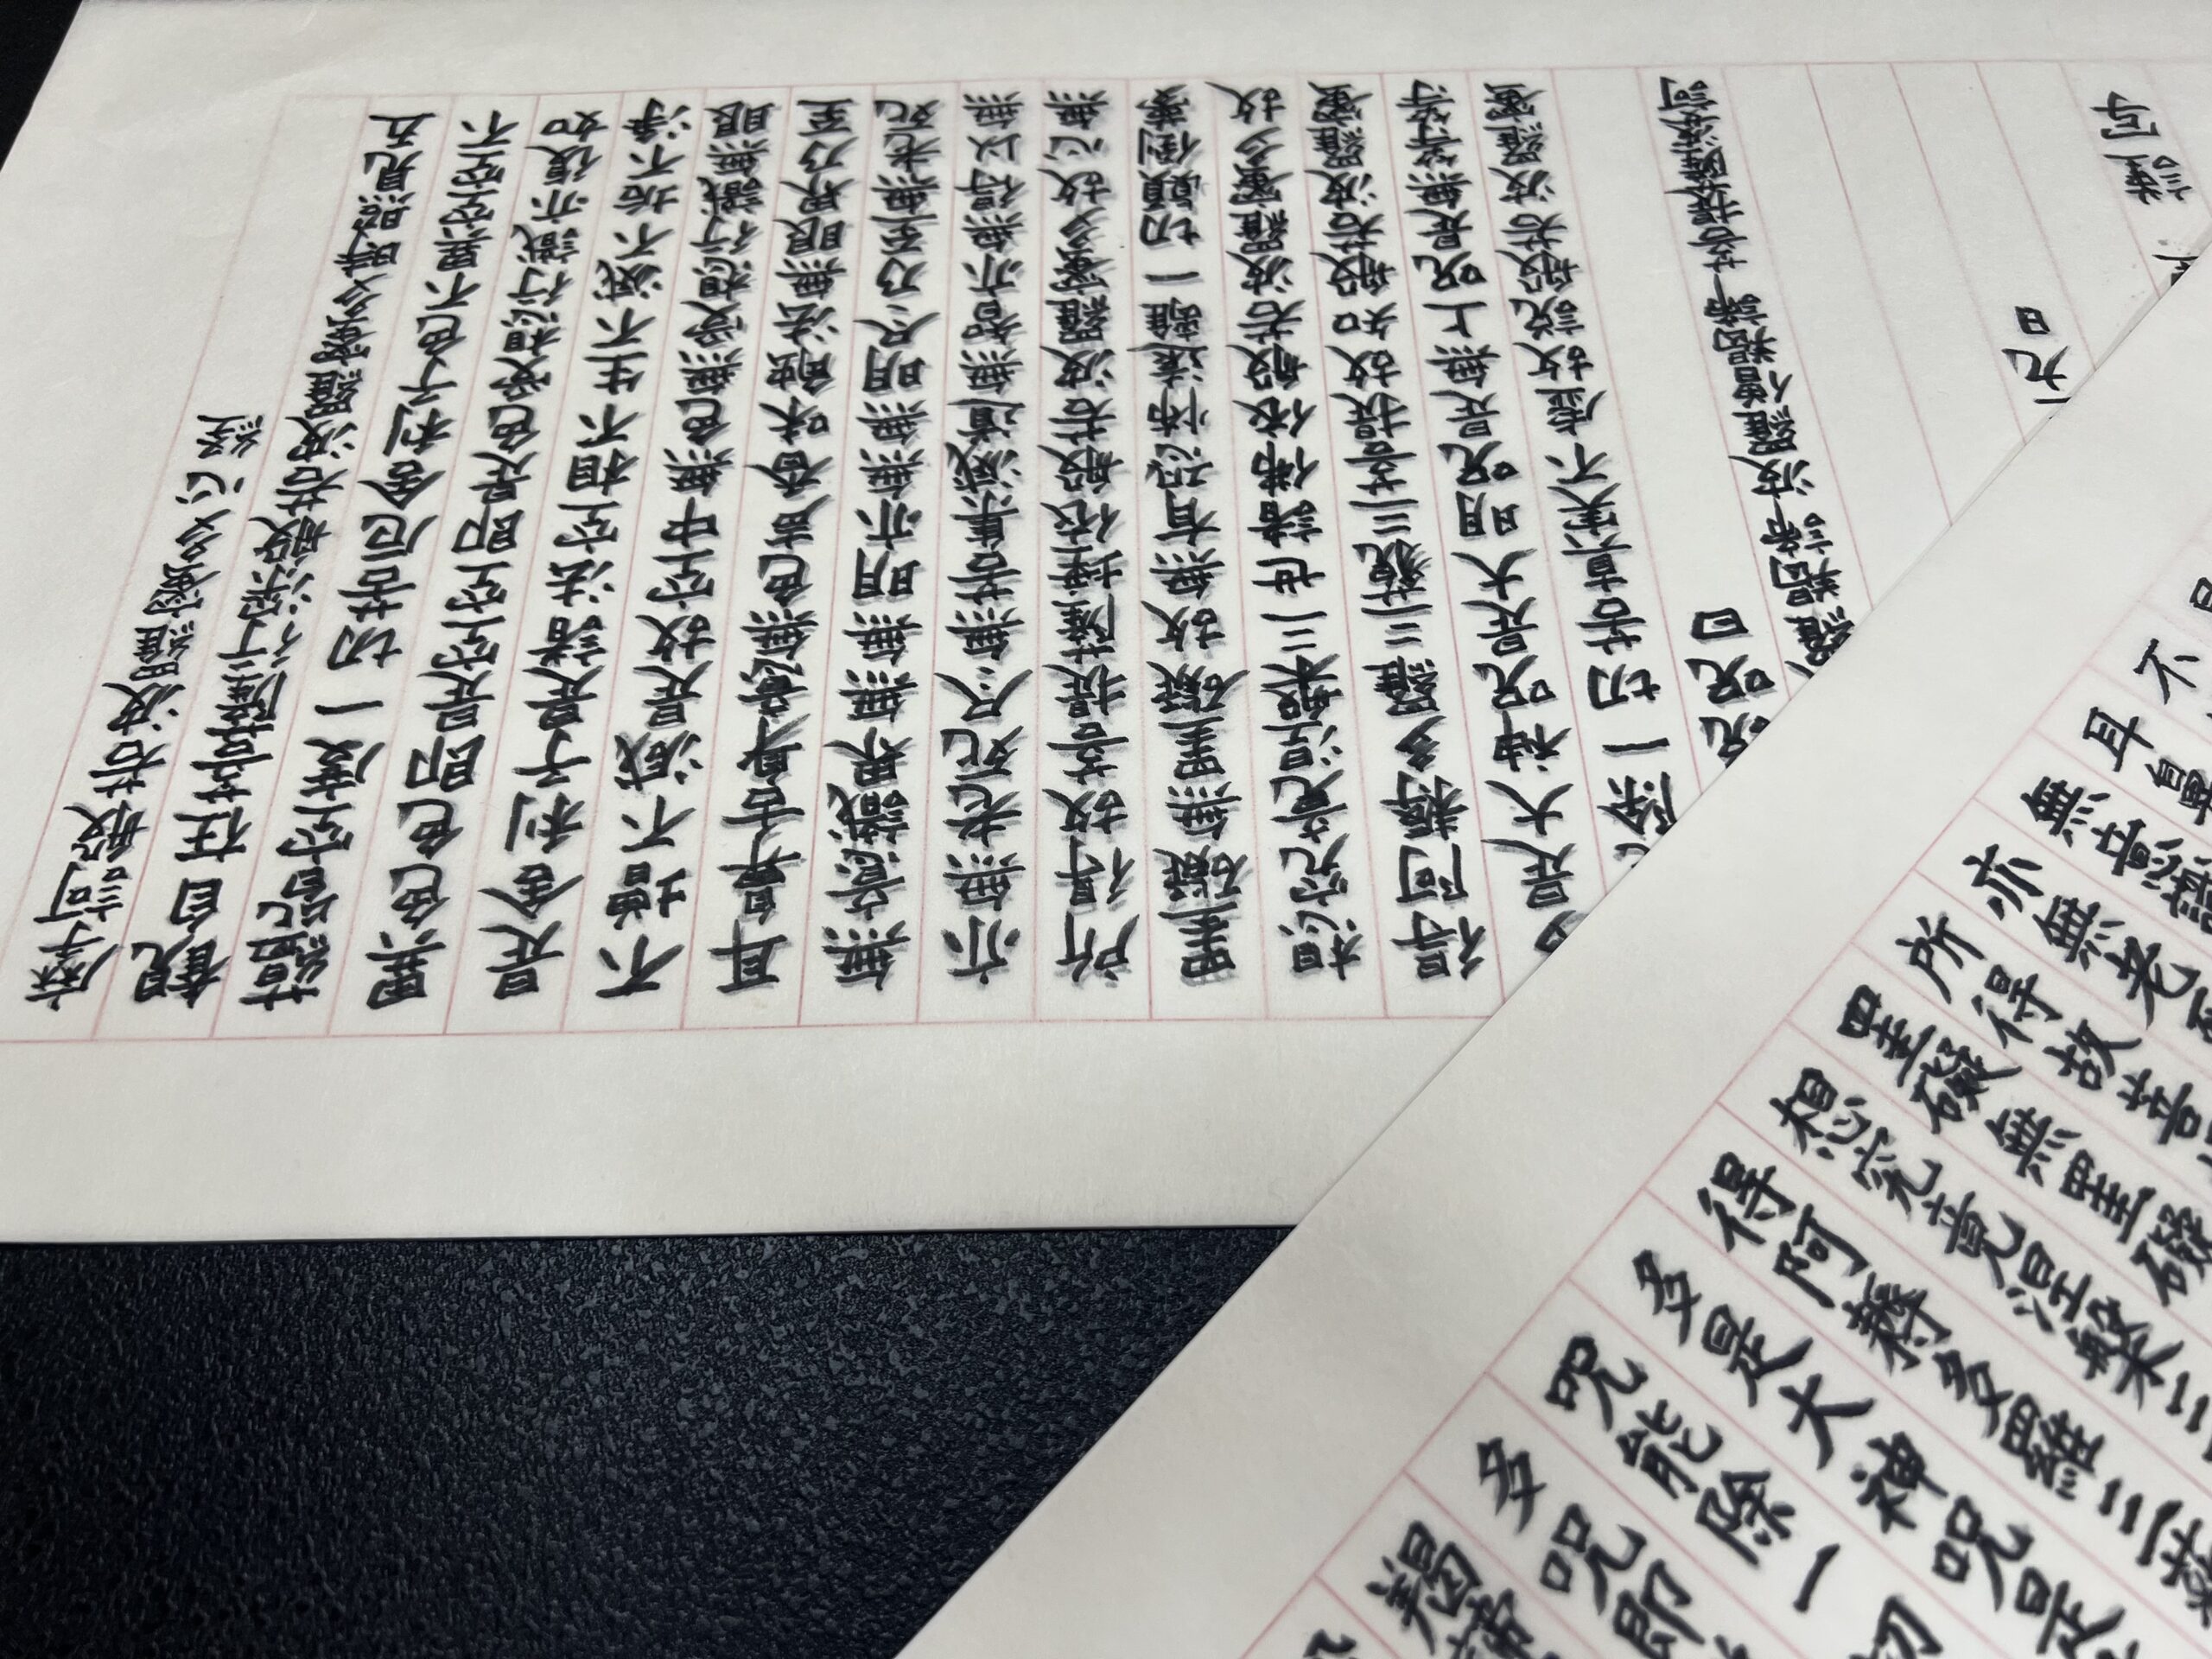 摩訶般若波羅蜜多心経
観自在菩薩行深般若波羅蜜多時照見五
蘊皆空度一切苦厄舎利子色不異空空不
異色色即是空空即是色受想行識亦復如
是舎利子是諸法空相不生不滅不垢不浄
不増不減是故空中無色無受想行識無眼
耳鼻舌身意無色声香味触法無眼界乃至
無意識界無無明亦無無明尽乃至無老死
亦無老死尽無苦集滅道無智亦無得以無
所得故菩提薩埵依般若波羅蜜多故心無
罣礙無罣礙故無有恐怖遠離一切顛倒夢
想究竟涅槃三世諸佛依般若波羅蜜多故
得阿耨多羅三藐三菩提故知般若波羅蜜
多是大神呪是大明呪是無上呪是無等等
除一切苦真実不虚故説般若波羅蜜
呪曰
羅羯諦波羅僧羯諦菩提薩婆訶
九日
謹写
不
耳鼻
無意識
亦無老
所得故菩
罣礙無罣礙
想究竟涅槃三
得阿耨多羅三藐
多是大神呪是
呪能除一切
多呪即
羯諦